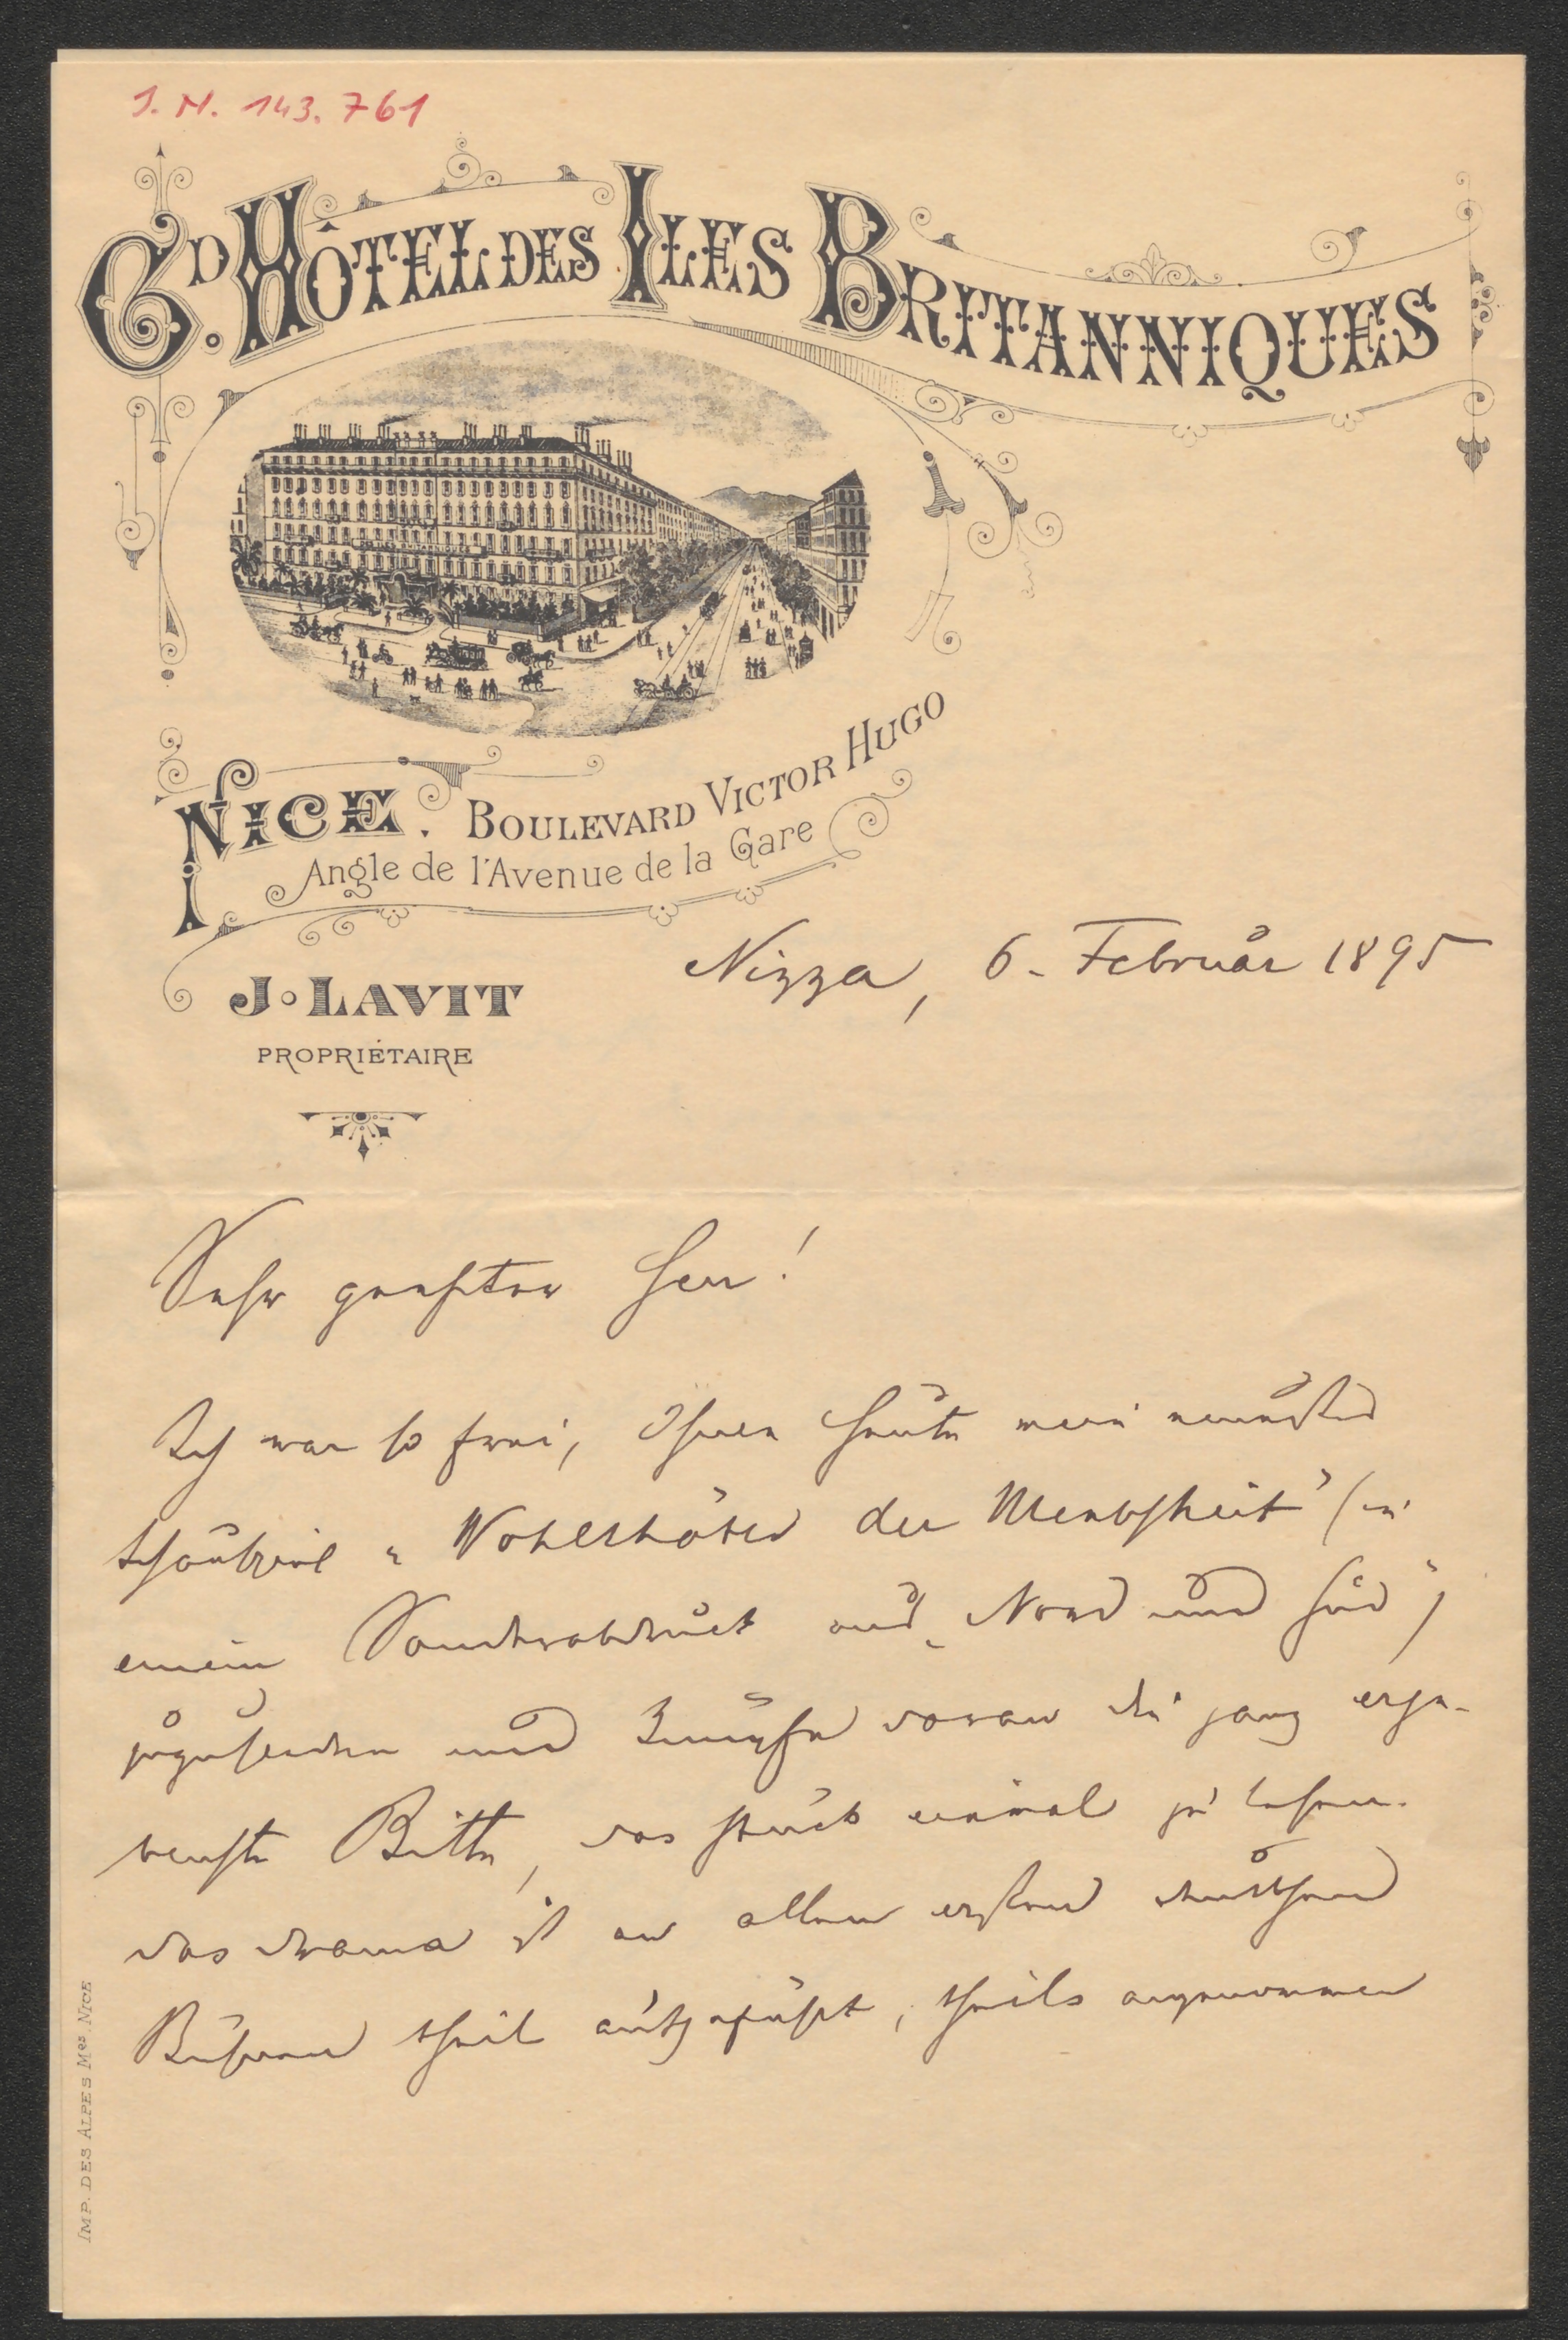 I. N. 143.761
GD. HÔTEL DES ILES BRITANNIQUES
NICE. BOULEVARD VICTOR HUGO
Angle de l'Avenue de la Gare
J. LAVIT
PROPRIÉTAIRE
Nizza, 6. Februar 1895
Sehr geehrter Herr!
Ich war so frei, Ihnen heute mein neuestes
Schauspiel „Wohlthäter der Menschheit" (in
einem Sonderabdruck aus „Nord und Süd")
zuzusenden und knüpfe daran die ganz erge-
benste Bitte, das Stück einmal zu lesen.
Das Drama ist an allen ersten deutschen
Bühnen theils aufgeführt, theils angenommen
IMP. DES ALPES Mes NICE